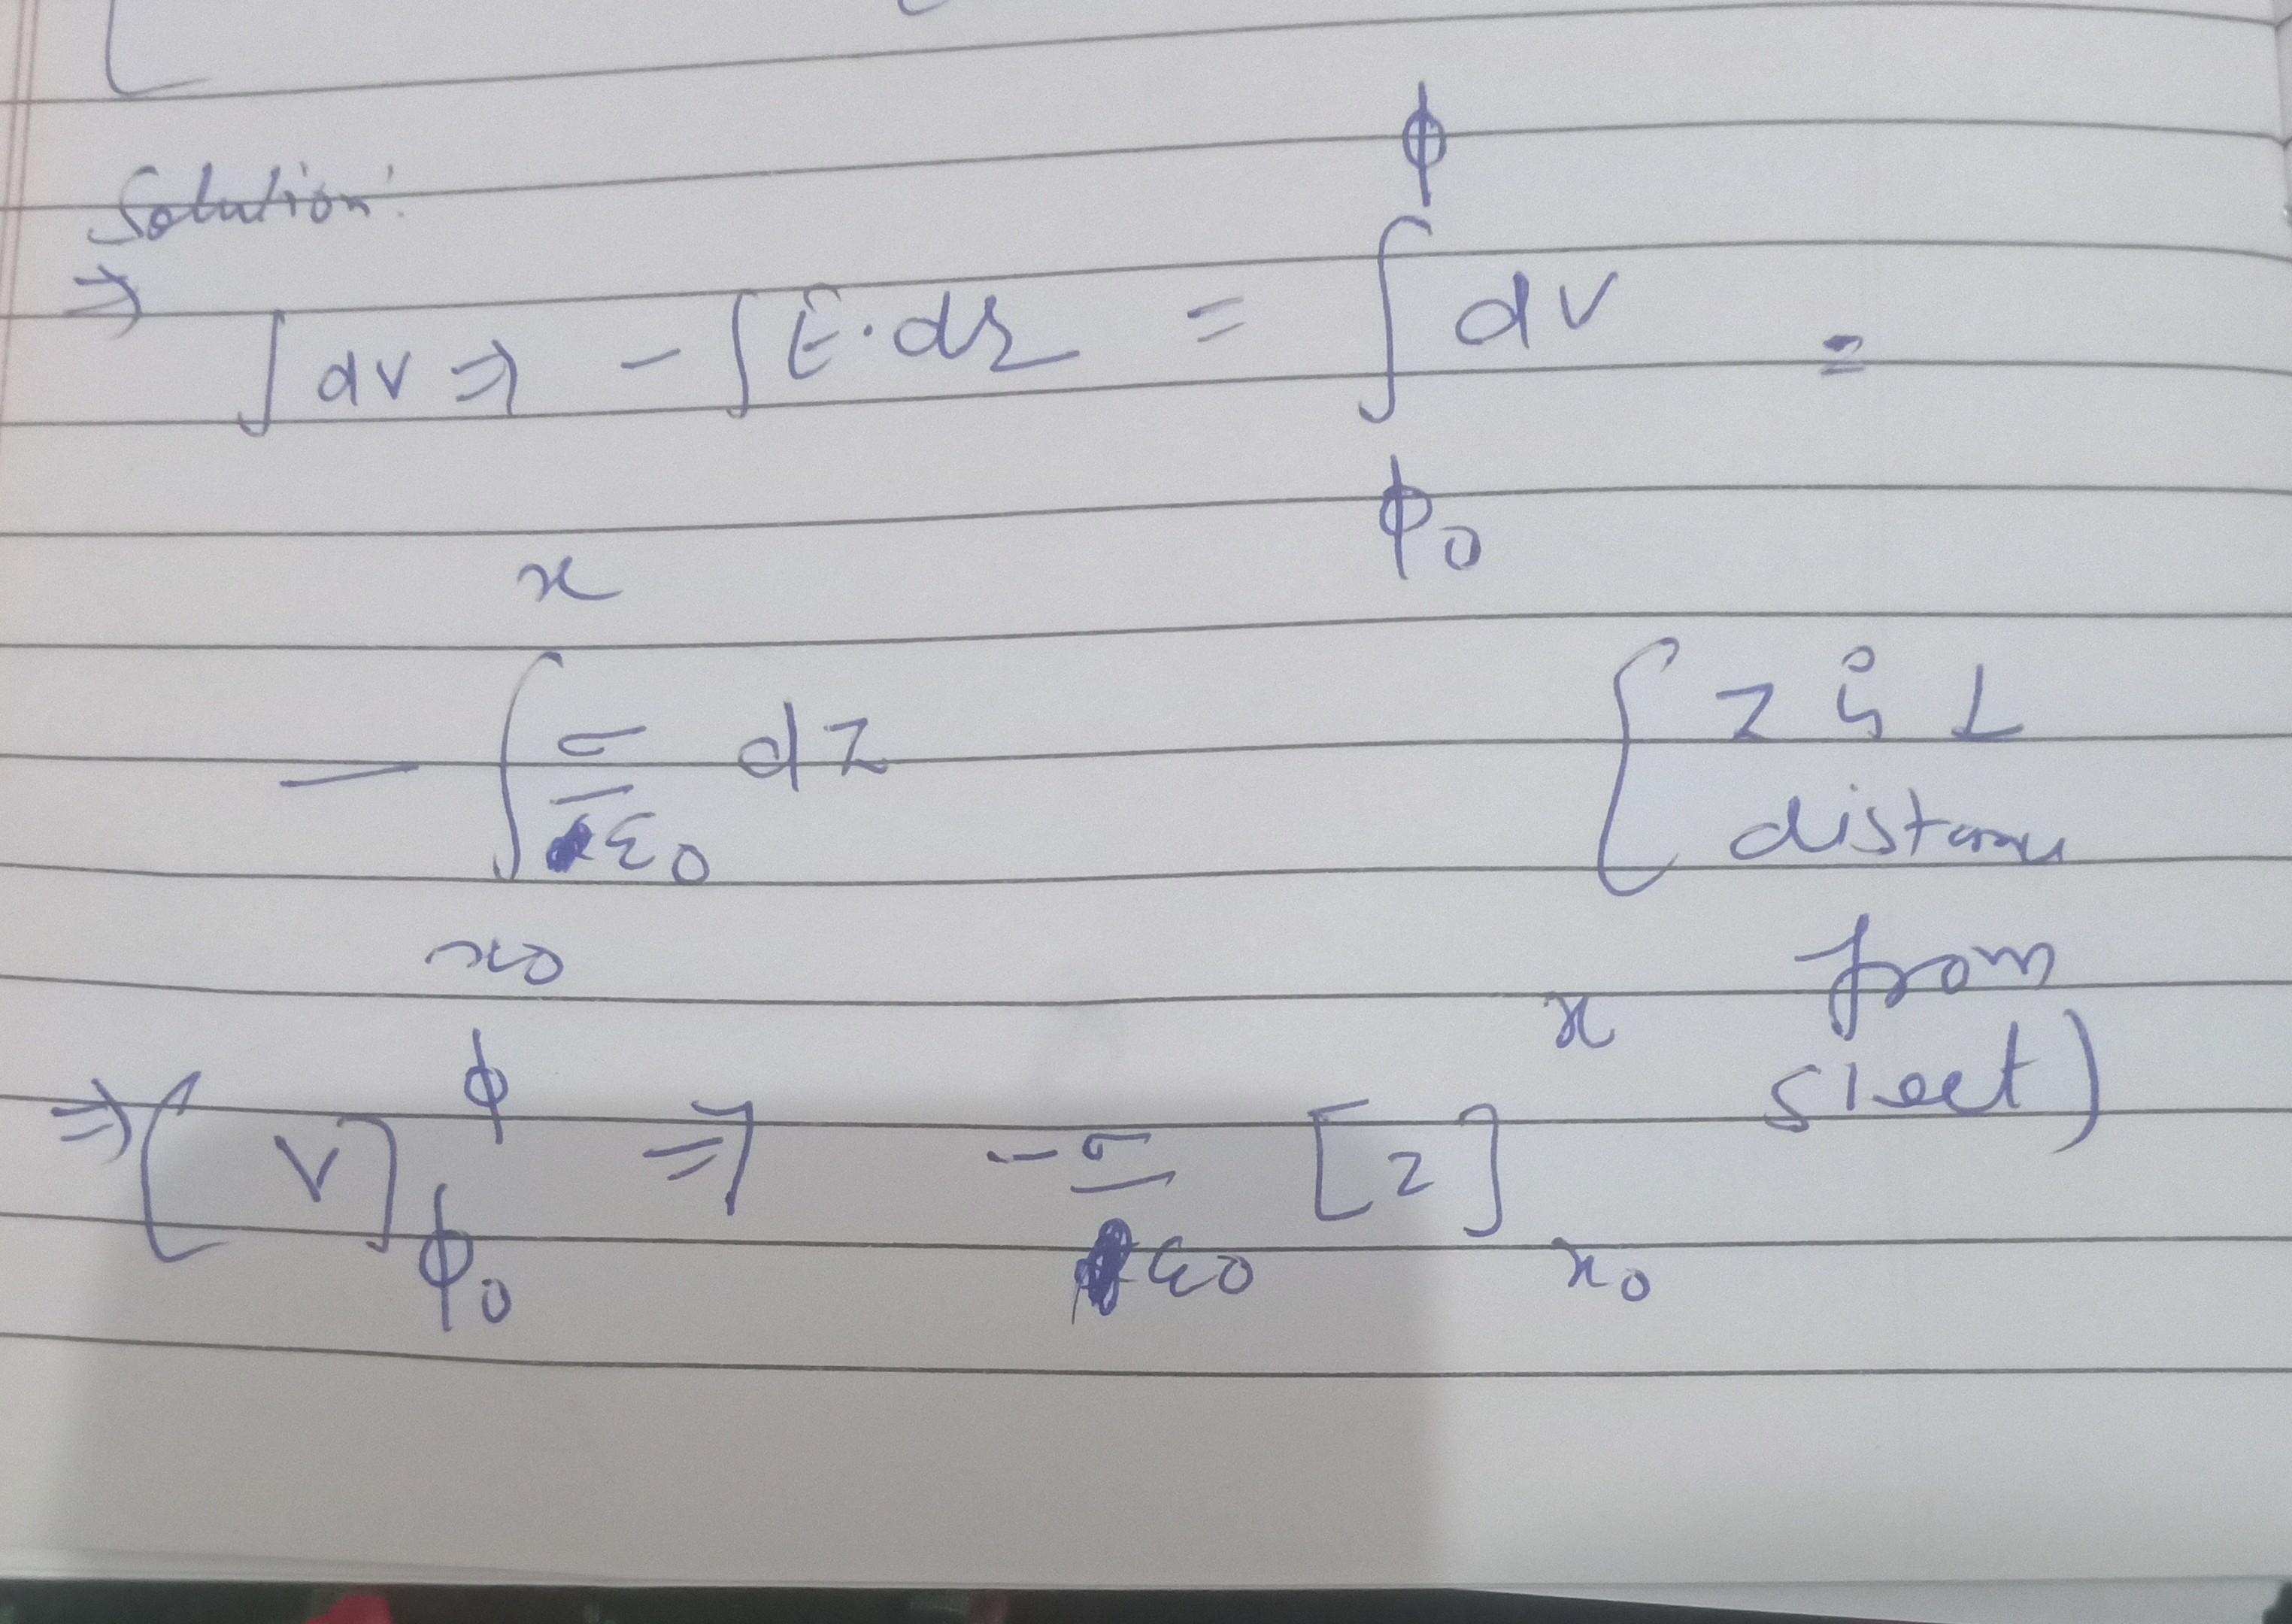 Solution:
⇒
∫ dv ⇒ - ∫ Ē · dr = ∫_{ϕ_0}^{ϕ} dv =
- ∫_{x_0}^{x} σ/ε_0 dz
{ z is ⊥
distance
from
sheet)
⇒ [v]_{ϕ_0}^{ϕ} ⇒ -σ/ε_0 [z]_{x_0}^{x}